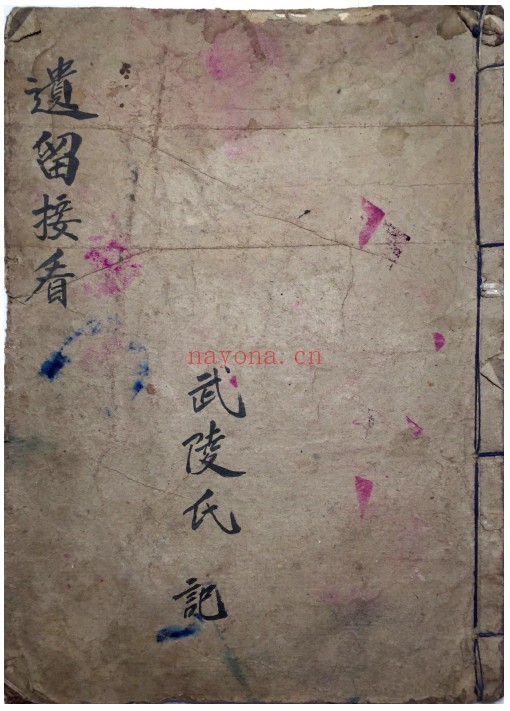 遺留接看
武陵氏 記
nayona.cn